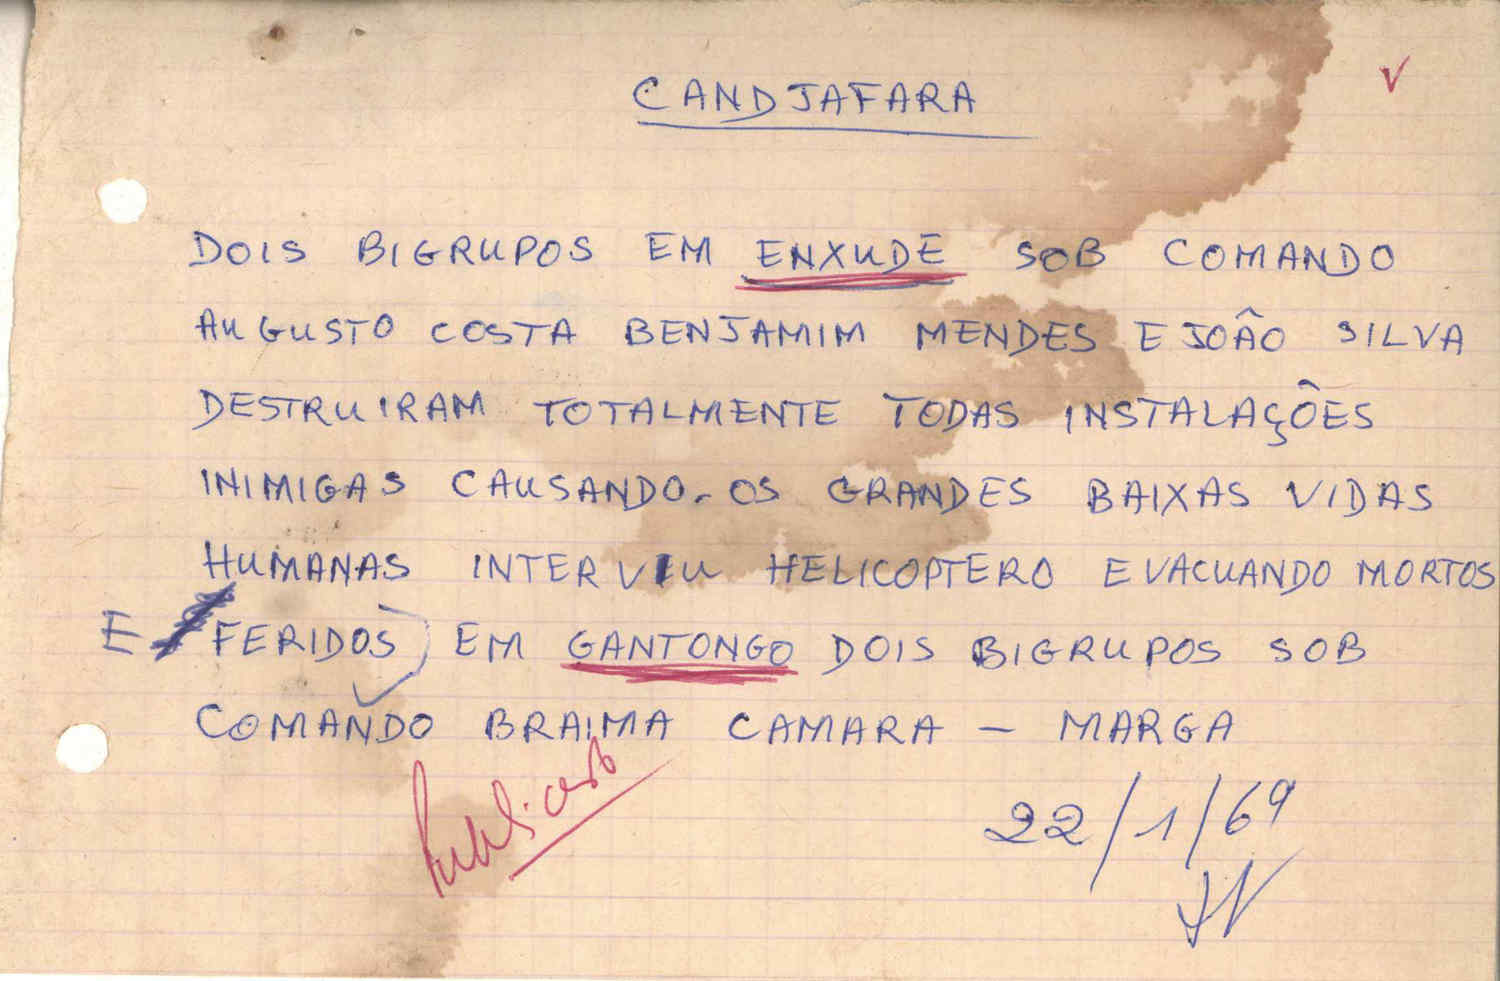 CANDJAFARA
DOIS BIGRUPOS EM ENXUDE SOB COMANDO
AUGUSTO COSTA BENJAMIM MENDES E JOÂO SILVA
DESTRUIRAM TOTALMENTE TODAS INSTALAÇÔES
INIMIGAS CAUSANDO-OS GRANDES BAIXAS VIDAS
HUMANAS INTERVIU HELICOPTERO EVACUANDO MORTOS
E FERIDOS) EM GANTONGO DOIS BIGRUPOS SOB
COMANDO BRAIMA CAMARA – MARGA
Publicado
22/1/69